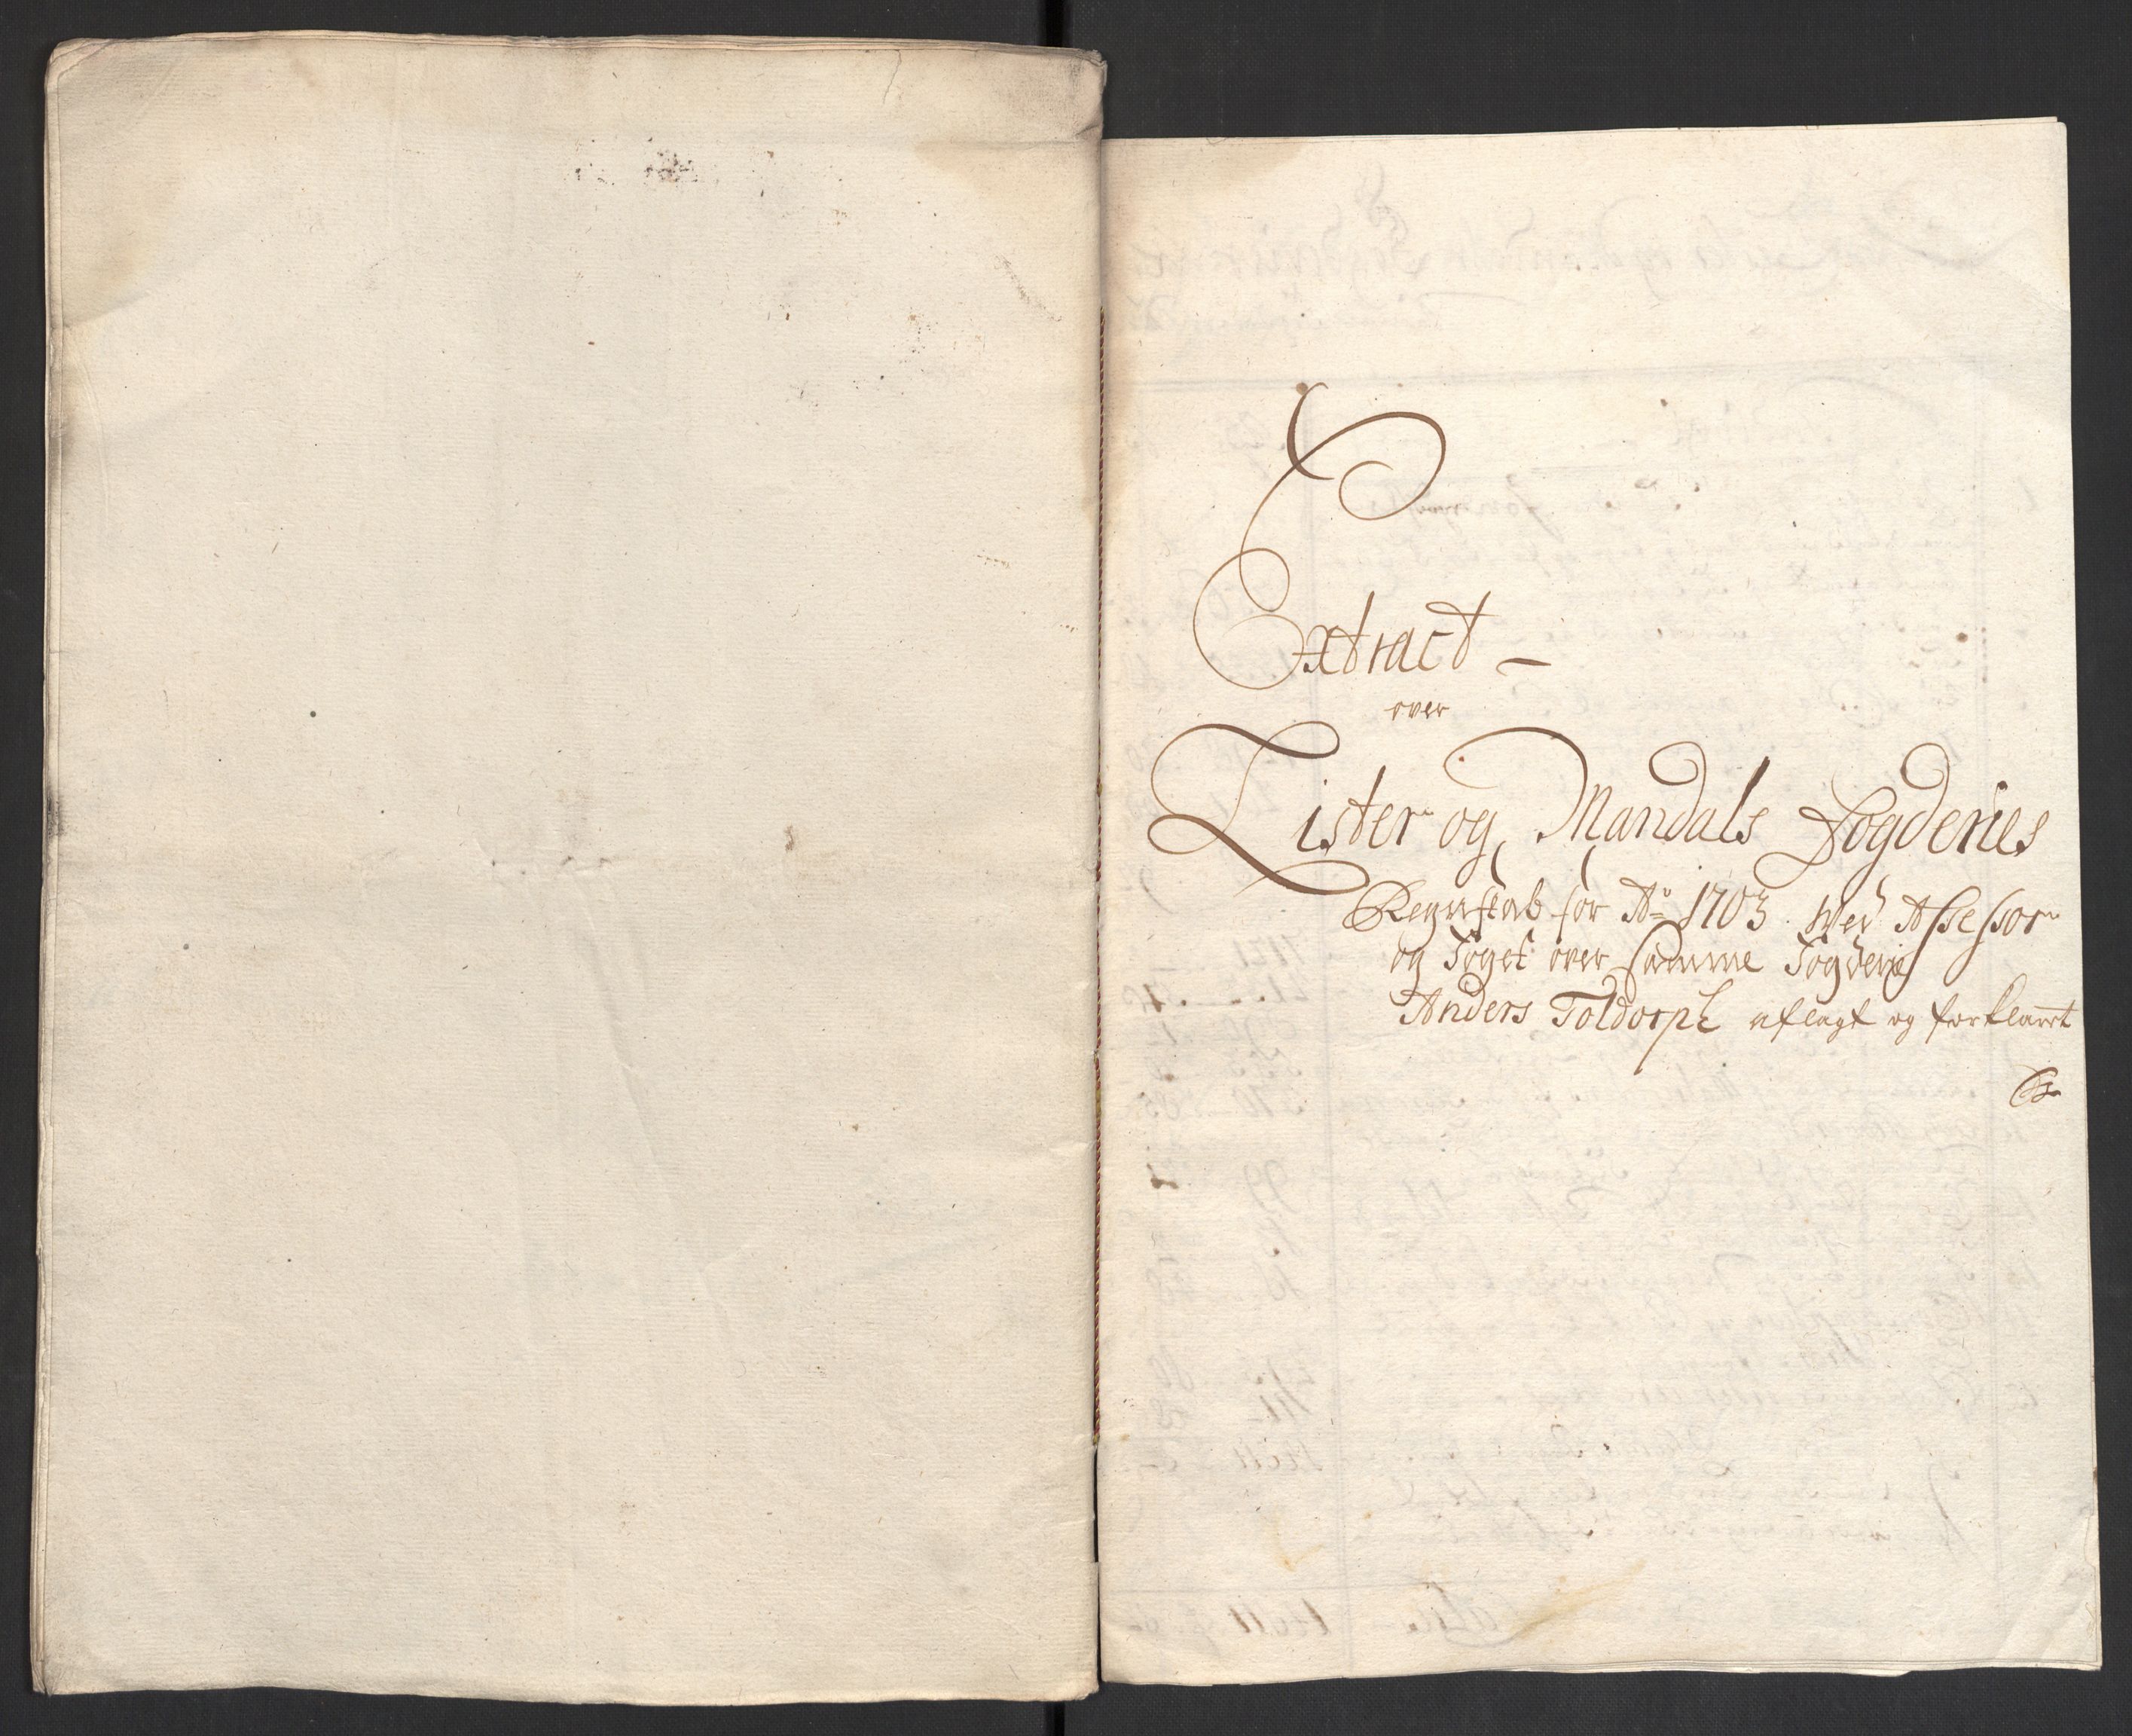 Extract –
over
Lister og Mandals Fogderies
Regnskab for Ao 1703. Wed Assessor
og Foget over samme Fogderie
Anders Toldorph aflagt og forklarret